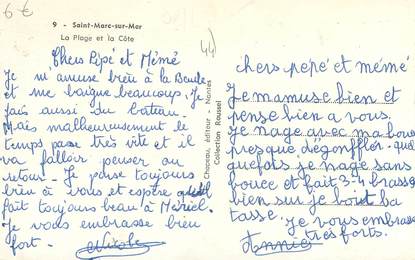 6 €
9 - Saint-Marc-sur-Mer
La Plage et la Côte
44
Chers Pépé et Mémé
Je m'amuse bien à la Baule
et me baigne beaucoup. Je
fais aussi du bateau.
Mais malheureusement le
temps passe très vite et il
va falloir penser au
retour. Je pense toujours
bien à vous et espère qu'il
fait toujours beau à Mériel.
Je vous embrasse bien
fort. Nicole
Chapeau, éditeur - Nantes
Collection Roussel
chers pépé et mémé
Je m'amuse bien et
pense bien a vous.
Je nage avec ma boué
presque dégonfler. quel
quefois je nage sans
bouee et fait 3-4 brasse
bien sur je bout ba
tasse.
Je vous embrasse
tres forts.
Annie